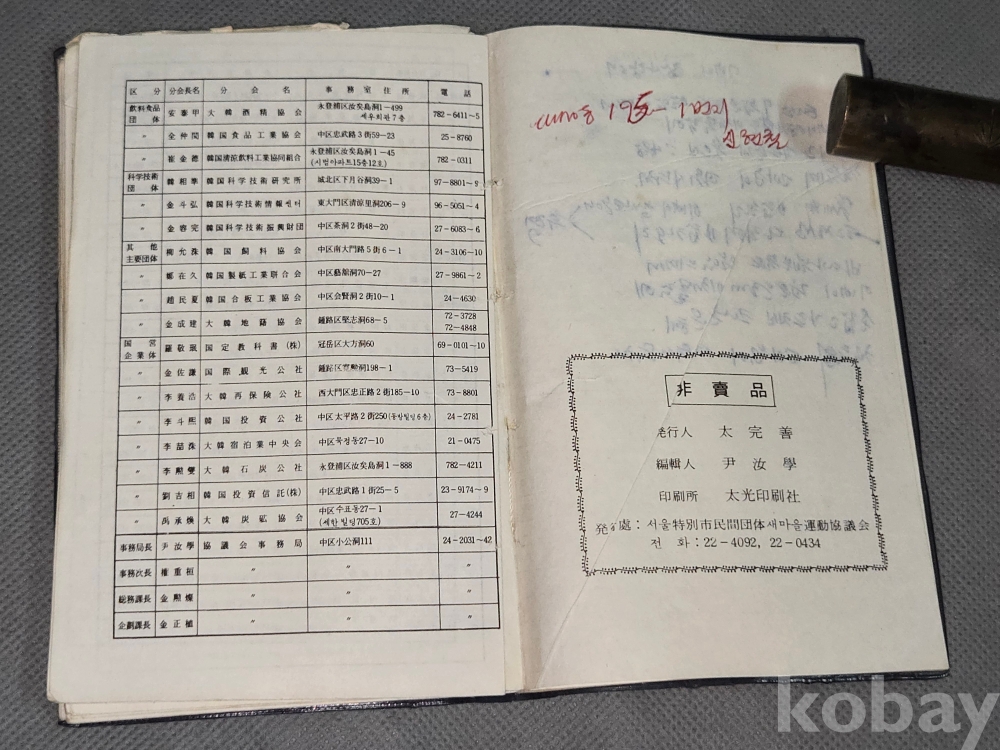 区 分 分会長名 分 会 名 事 務 室 住 所 電 話
飲料食品団体 安泰甲 大韓酒精協会 永登捕区汝矣島洞1-499 세우회관7층 782-6411~5
〃 全仲閏 韓国食品工業協会 中区忠武路3街59-23 25-8760
〃 崔金德 韓国清涼飲料工業協同組合 永登捕区汝矣島洞1-45 (시범아파트15층12호) 782-0311
科学技術団体 韓相準 韓国科学技術研究所 城北区下月谷洞39-1 97-8801~9
〃 金斗弘 韓国科学技術情報센터 東大門区清凉里洞206-9 96-5051~4
〃 金容完 韓国科学技術振興財団 中区茶洞2街48-20 27-6083~6
其他主要団体 柳允洙 韓国飼料協会 中区南大門路5街6-1 24-3106~10
〃 鄭在久 韓国製紙工業聯合会 中区藝舘洞70-27 27-9861~2
〃 趙民夏 韓国合板工業協会 中区会賢洞2街10-1 24-4630
〃 金成建 大韓地籍協会 鍾路区堅志洞68-5 72-3728 72-4848
国営企業体 羅敬珉 国定教科書(株) 冠岳区大方洞60 69-0101~10
〃 金佐謙 国際観光公社 鍾路区貫鉄洞198-1 73-5419
〃 李養浩 大韓再保険公社 西大門区忠正路2街185-10 73-8801
〃 李斗熙 韓国投資公社 中区太平路2街250(동방빌딩6층) 24-2781
〃 李喆洙 大韓宿泊業中央会 中区묵정동27-10 21-0475
〃 李熙燮 大韓石炭公社 永登捕区汝矣島洞1-888 782-4211
〃 劉吉相 韓国投資信託(株) 中区忠武路1街25-5 23-9174~9
〃 禹承煥 大韓炭砿協会 中区수표동27-1 (세한빌딩705호) 27-4244
事務局長 尹汝學 協議会事務局 中区小公洞111 24-2031~42
事務次長 權重桓 〃 〃 〃
総務課長 金熙燦 〃 〃 〃
企劃課長 金正植 〃 〃 〃
非賣品
発行人 太完善
編輯人 尹汝學
印刷所 太光印刷社
発行處: 서울特別市民間団体새마을運動協議会
전 화: 22-4092, 22-0434
kobay